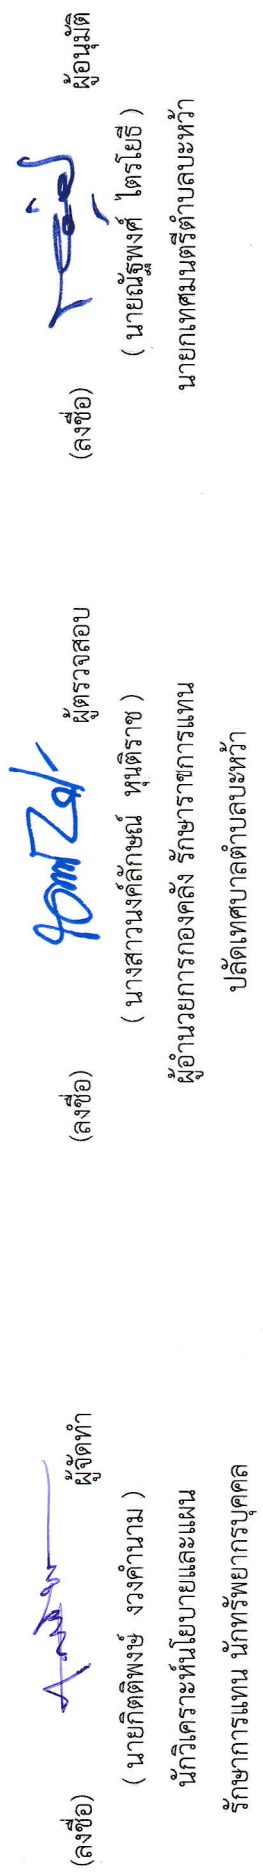 (ลงชื่อ) ผู้จัดทำ
( นายกิตติพงษ์ งวงคำนาม )
นักวิเคราะห์นโยบายและแผน
รักษาการแทน นักทรัพยากรบุคคล
(ลงชื่อ) ผู้ตรวจสอบ
( นางสาวนงค์ลักษณ์ หุนติราช )
ผู้อำนวยการกองคลัง รักษาราชการแทน
ปลัดเทศบาลตำบลบะหว้า
(ลงชื่อ) ผู้อนุมัติ
( นายณัฐพงศ์ ไตรโยธี )
นายกเทศมนตรีตำบลบะหว้า